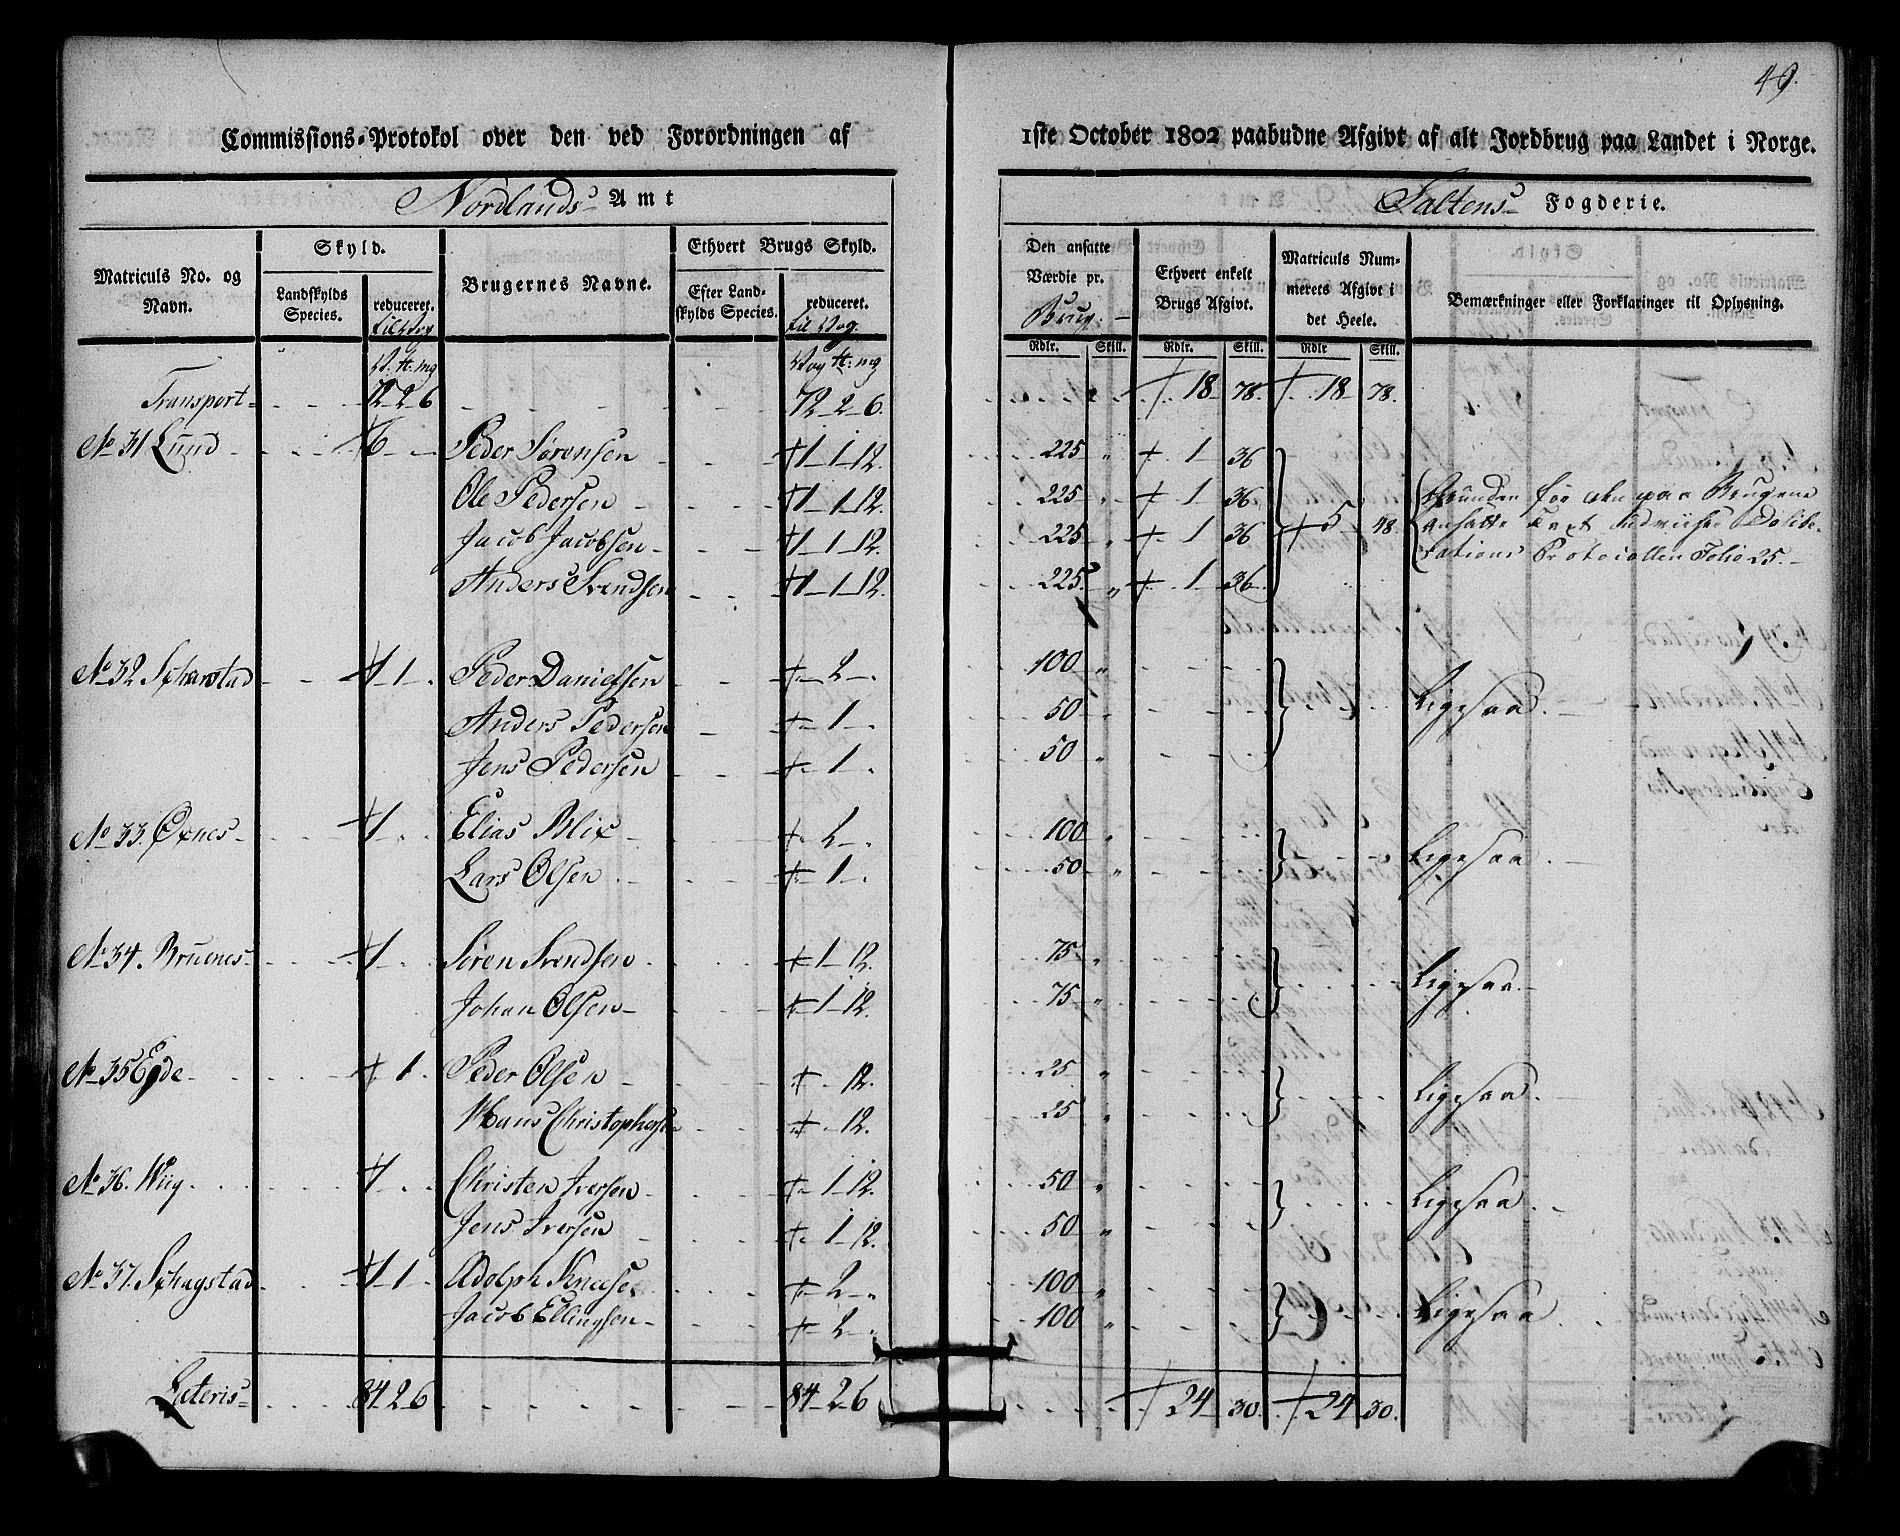 49.
Commissions-Protokol over den ved Forordningen af 1ste October 1802 paabudne Afgivt af alt Jordbrug paa Landet i Norge.
Nordlands Amt
Saltens Fogderie.
Matriculs No. og Navn.
Skyld.
Landskylds Species.
reduceret.
til Vog
Brugernes Navne.
Ethvert Brugs Skyld.
Efter Landskylds Species.
reduceret.
til Vog.
Den ansatte Værdie pr.
Brug.
Ethvert enkelt Brugs Afgivt.
Matriculs Nummerets Afgivt i det Heele.
Bemærkninger eller Forklaringer til Oplysning.
Rdlr. Skill. Rdlr. Skill. Rdlr Skill.
V. ℔. mg Vog ℔. mg
Transport 72 2 6 72 2 6. 18 78. 18 78.
No 31 Lund 6 Peder Sørensen 1 1 12. 225 " 1 36
Ole Pedersen 1 1 12. 225 " 1 36
Jacob Jacobsen 1 1 12. 225 " 1 36 5 48.
Anders Svendsen 1 1 12. 225. " 1 36.
Grunden for den paa Brugene
ansatte Taxt udviiser Delibe-
rations Protocollen Folio 25.
No 32 Scharstad 1 1. Peder Danielsen 2 100 " Ligesaa.
Anders Pedersen 1 50 "
Jens Pedersen 1 50 "
No 33. Øxnes 1 Elias Blix 2 100 " Ligesaa.
Lars Olsen 1 50 "
No 34. Bruenes 1 Søren Svendsen 1 12. 75 " Ligesaa.
Johan Olsen 1 12. 75 "
No 35 Egde 1. Peder Olsen 12. 25 " Ligesaa.
Hans Christophersen 12. 25 "
No 36. Wiig 1 Christen Iversen 1 12. 50 " Ligesaa.
Jens Iversen 1 12. 50 "
No 37. Schagstad 1 1 Adolph 2 100 " Ligesaa.
Jacob Ellingsen 2 100 "
Lateris 84 2 6 84 2 6 24 30. 24 30.